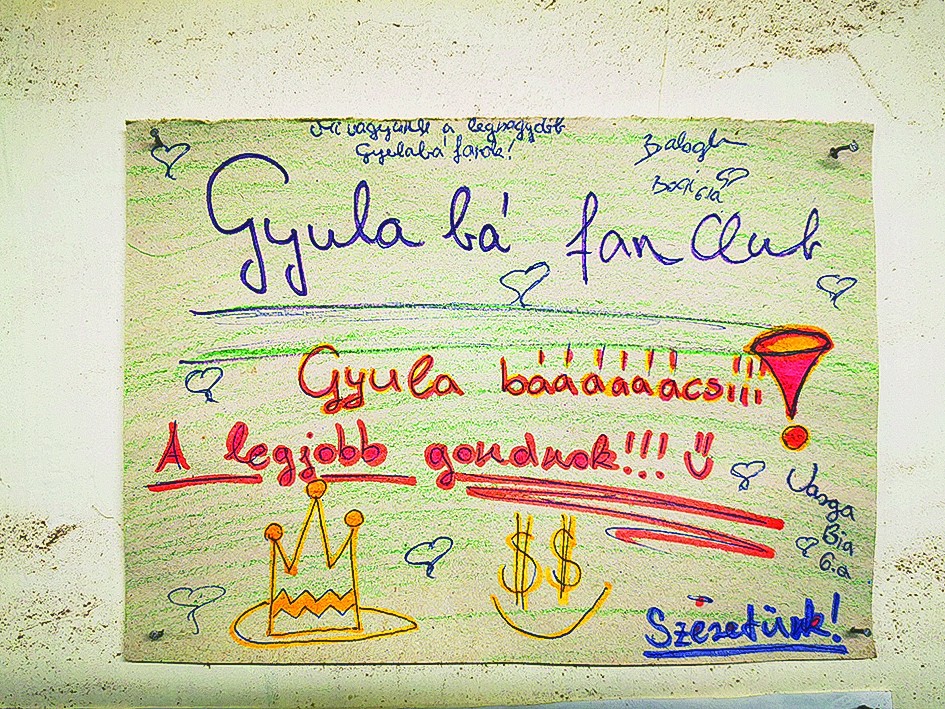 Mi vagyunk a legnagyobb
Gyulabá' fanok!
Balogh
Bogi
6.a
Gyula bá' fan Club
Gyula báááááácsiii!
A legjobb gondnok!!! Ü
Varga
Bia
6.a
$ $
Szeretünk!